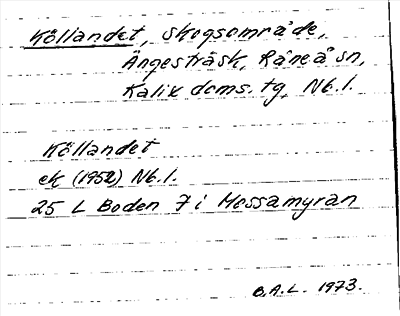 Köllandet, skogsområde,
Ängesträsk, Råneå sn,
Kalix doms. tg, Nb.l.
Köllandet
ek (1952) Nb.l.
25 L Boden 7i Mossamyran
B.A.L. 1973.